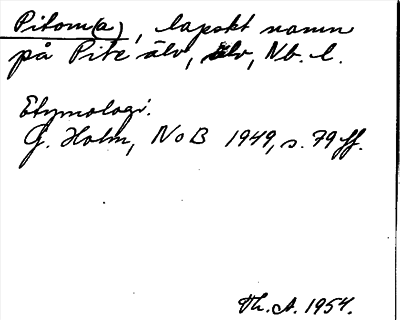 Pitom(a), lapskt namn
på Pite älv, älv, Nb. l.
Etymologi.
G. Holm, NoB 1949, s. 79 ff.
Th. A. 1954.